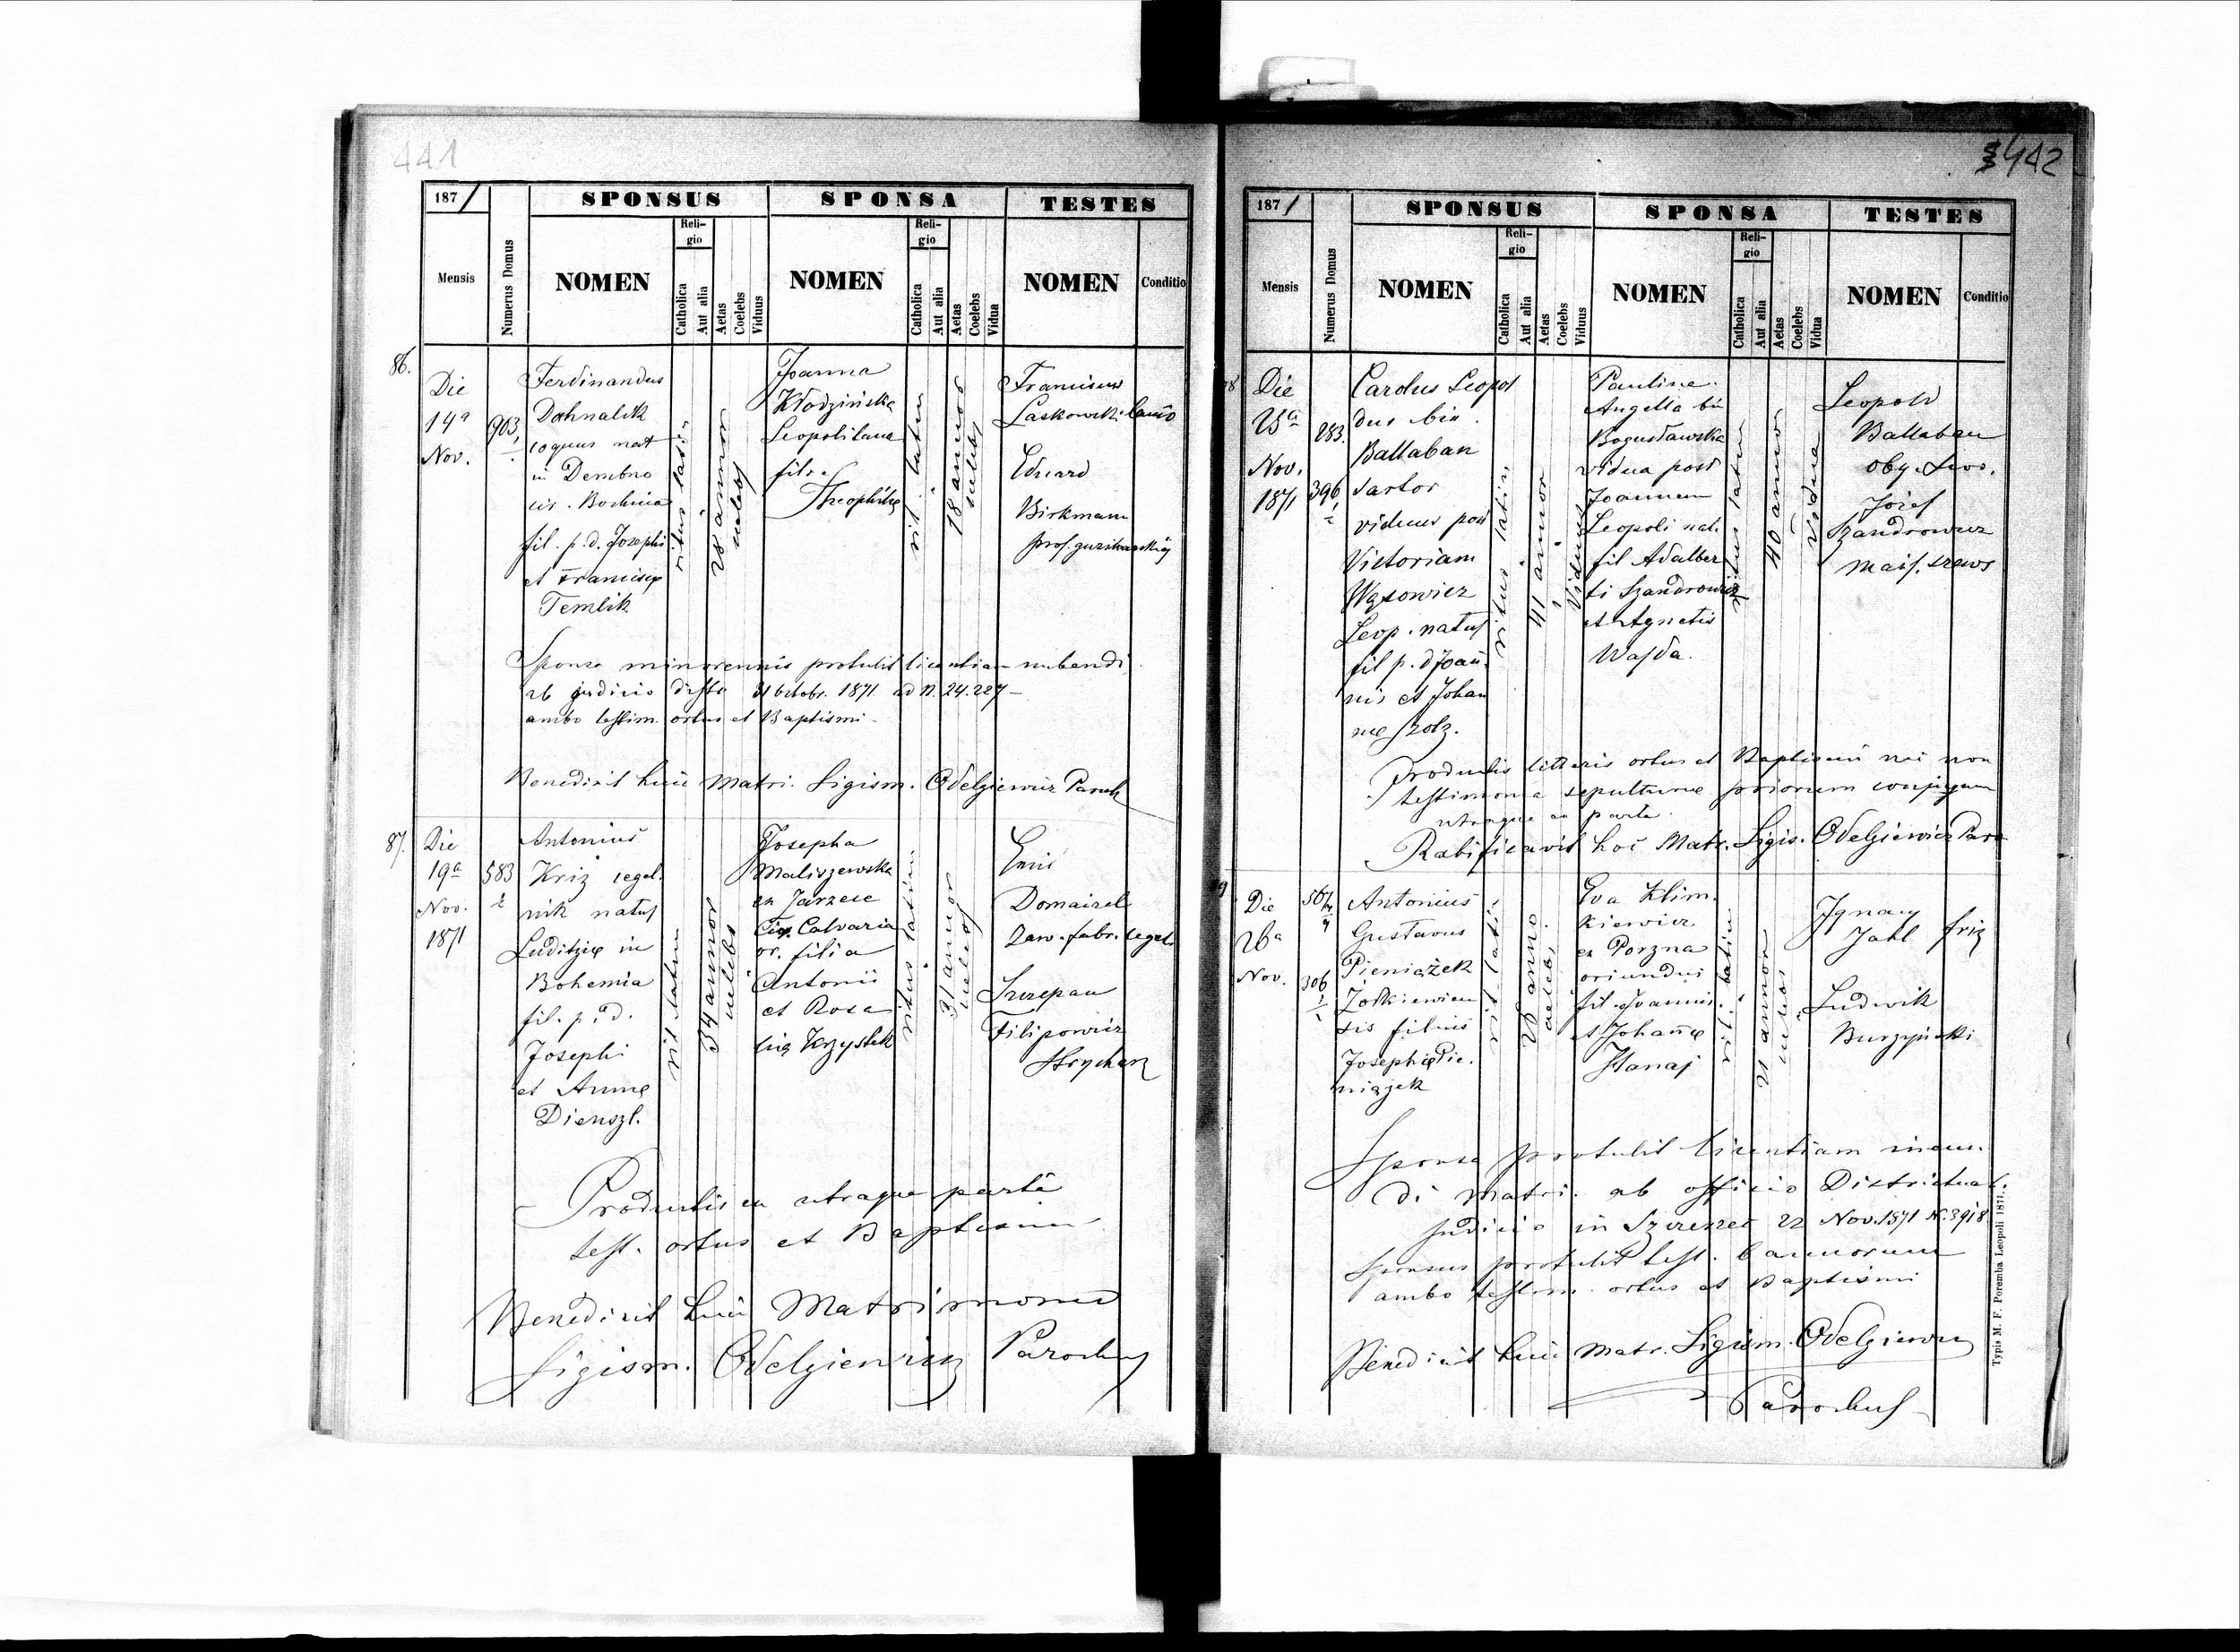 441
187/
SPONSUS
SPONSA
TESTES
Mensis
Numerus Domus
NOMEN
Religio
Catholica
Aut alia
Aetas
Coelebs
Viduus
NOMEN
Religio
Catholica
Aut alia
Aetas
Coelebs
Vidua
NOMEN
Conditio
86.
Die
14ª
Nov.
903
Ferdinandus
Dohnalik
coquus nat
in Dembno
cir. Bochnia
fil. p.d. Josephi
et Franciscę
Temlik
ritus latin
28 annor
coelebs
Joanna
Kłodzińska
Leopolitana
filia
Theophilę
rit. latin
18 annor
coelebs
Franciscus
Laskowski lanio
Eduard
Birkmann
prof. guzikarskiej
Sponsa minorennis protulit licentiam nubendi
ab judicio dtto 31 Octobr. 1871 ad N. 24.227
ambo testim. ortus et Baptismi
Benedixit huic Matri. Sigism. Odelgiewicz Paroch
87.
Die
19ª
Nov.
1871
583
Antonius
Kriz cegel.
nik natus
Luditzię in
Bohemia
fil. p. d.
Josephi
et Annę
Dienszl.
rit latin
34 annor
coelebs
Josepha
Maliszewska
ex Jarzece
Cir. Calvaria
or. filia
Antonii
et Rosa
lię Krzystek
ritus latin
31 annor
coelebs
Domaizel
zaw. fabr. cegeł
Szczepan
Filipowicz
Strycharz
Productis ex utraque parte
test. ortus et Baptismi
Benedixit huic Matrimonio
Sigism. Odelgiewicz Parochus
442
187/
SPONSUS
SPONSA
TESTES
Mensis
Numerus Domus
NOMEN
Religio
Catholica
Aut alia
Aetas
Coelebs
Viduus
NOMEN
Religio
Catholica
Aut alia
Aetas
Coelebs
Vidua
NOMEN
Conditio
Die
25ª
Nov.
1871
283.
396
Carolus Leopol
dus bin
Ballaban
sartor
viduus post
Victoriam
Wąsowicz
Leop. natus
fil p. d Joan
nis et Johan
nę Szolz.
ritus latin
41 annor
Viduus
Pauline
Angella bin
Bogusławska
vidua post
Joannem
Leopoli nat.
fil Adalber
ti Szandrowicz
et Agnetis
Wajda.
ritus latin
40 annor
vidua
Leopold
Ballaban
oby. Lwo.
Józef
Szandrowicz
majs. szews
Productis litteris ortus et Baptismi nec non
testimonia sepulturae priorum conjugum
utraque ex parte.
Ratificavit hoc Matr. Sigis. Odelgiewicz Paro
Die
26ª
Nov.
567
306
Antonius
Gustavus
Pieniążek
Żołkiewien
sis filius
Josephię Pie.
niązek
rit latin
26 anno.
coelebs
Eva Klim
kiewicz
ex Porzna
oriundus
fil. Joannis
et Johannę
Hanaj
rit. latin
21 annor
Ignacy
Jahl friz
Ludwik
Burzyński
Sponsa protulit licentiam ineun.
di matri. ab officio Districtual.
Judicio in Szczerzec 22 Nov. 1871 N. 3918
Sponsus protulit test. bannorum
ambo testim. ortus et Baptismi
Benedixit huic Matr. Sigism. Odelgiewicz
Parochus
Typis M. F. Poremba Leopoli 1871.